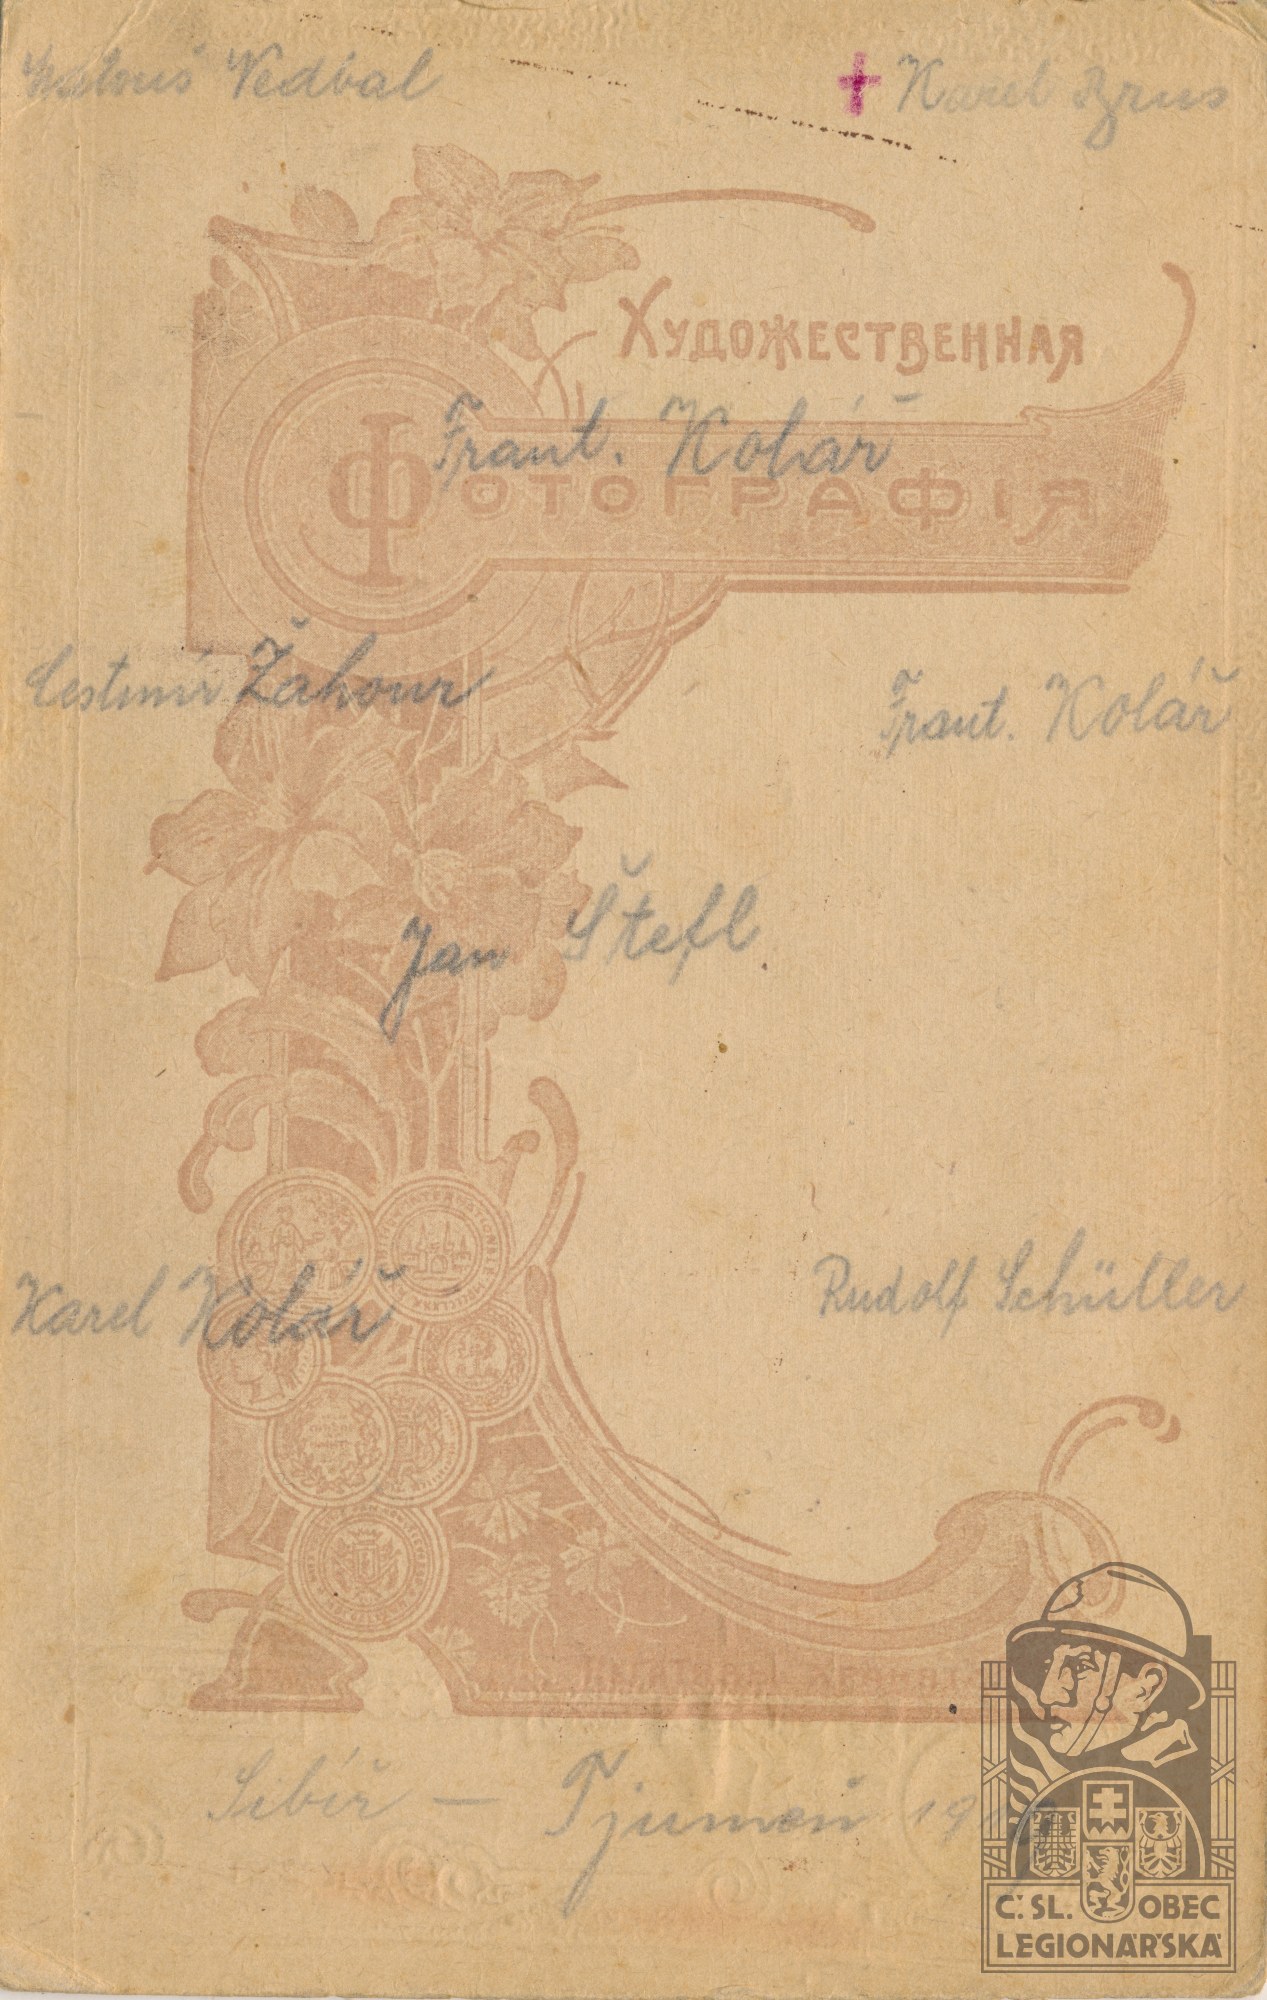 Vedbal
† Karel Brus
Художественная
Frant. Kolář
Фотографія
Čestmír Žahour
Frant. Kolář
Jan Štefl
Karel Kolář
Rudolf Schüller
Sibíř — Tjumeň
Č. SL. OBEC
LEGIONÁŘSKÁ